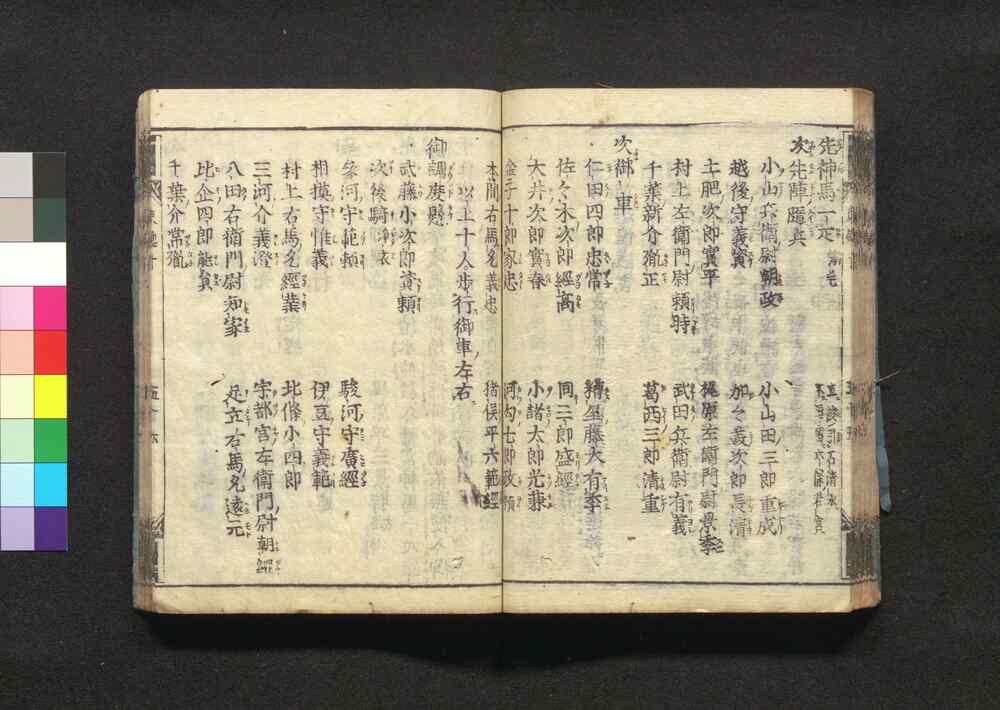 先神馬一疋
次先陣隨兵
小山兵衛尉朝政 小山田三郎重成
越後守義資 加々美次郎長清
土肥次郎實平 梶原左衛門尉景季
村上左衛門尉頼時 武田兵衛尉有義
千葉新介胤正 葛西三郎清重
次御車
仁田四郎忠常 猪熊藤太有季
佐々木次郎經高 同三郎盛經
大井次郎實春 小諸太郎光兼
金子十郎家忠 河勾七郎政頼
本間右馬允義忠 猪俣平六範經
以上十人歩行御車左右
御調度懸
武藤小次郎資頼
次後騎浄衣
參河守範頼 駿河守廣經
相摸守惟義 伊豆守義範
村上右馬允經業 北條小四郎
三河介義澄 宇都宮左衛門尉朝經
八田右衛門尉知家 足立右馬允遠元
比企四郎能員
千葉介常胤